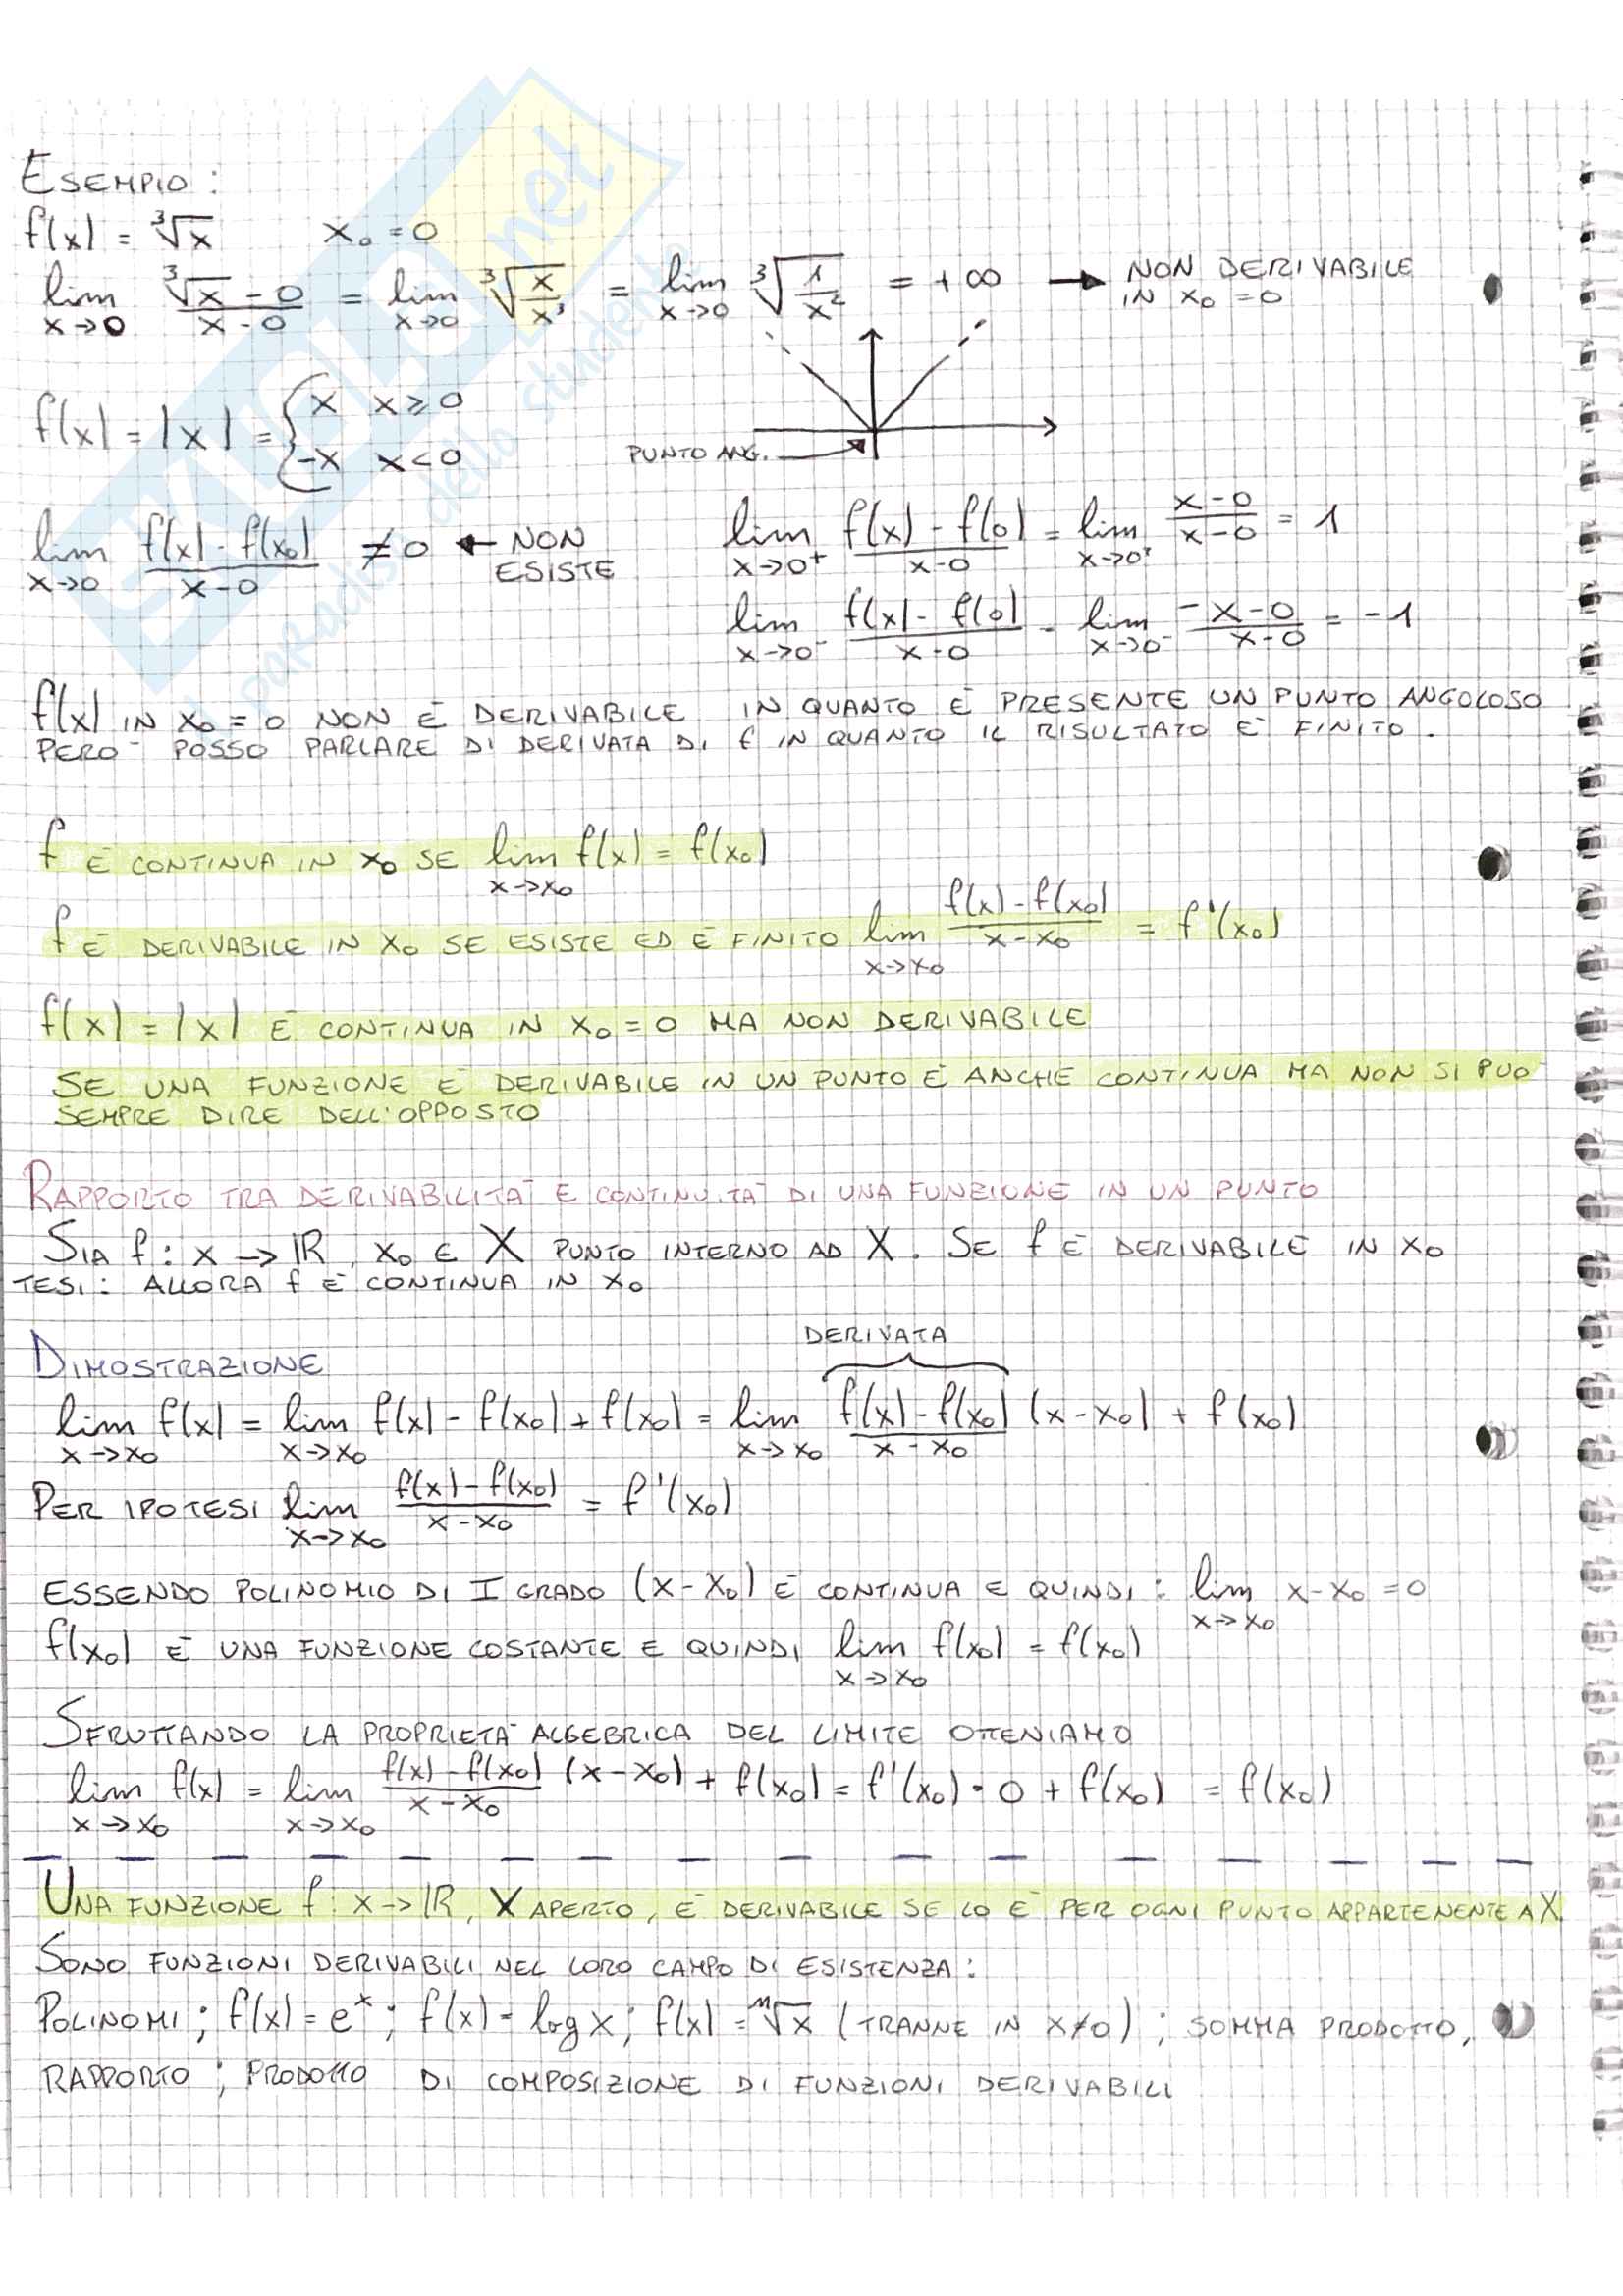 ESEMPIO:
f(x) = ∛x    x₀ = 0
lim x→0 (∛x - 0)/(x - 0) = lim x→0 ∛(x/x³) = lim x→0 ∛(1/x²) = +∞ → NON DERIVABILE
IN x₀ = 0
f(x) = |x| = { x  x ≥ 0
-x  x < 0
PUNTO ANG.
lim x→0 (f(x) - f(x₀))/(x - 0) ≠ 0 ← NON ESISTE
lim x→0⁺ (f(x) - f(0))/(x - 0) = lim x→0⁺ (x - 0)/(x - 0) = 1
lim x→0⁻ (f(x) - f(0))/(x - 0) = lim x→0⁻ (-x - 0)/(x - 0) = -1
f(x) IN x₀ = 0 NON È DERIVABILE IN QUANTO È PRESENTE UN PUNTO ANGOLOSO
PERÒ POSSO PARLARE DI DERIVATA DI f IN QUANTO IL RISULTATO È FINITO.
f È CONTINUA IN x₀ SE lim x→x₀ f(x) = f(x₀)
f È DERIVABILE IN x₀ SE ESISTE ED È FINITO lim x→x₀ (f(x) - f(x₀))/(x - x₀) = f'(x₀)
f(x) = |x| È CONTINUA IN x₀ = 0 MA NON DERIVABILE
SE UNA FUNZIONE È DERIVABILE IN UN PUNTO È ANCHE CONTINUA MA NON SI PUÒ
SEMPRE DIRE DELL'OPPOSTO
RAPPORTO TRA DERIVABILITÀ E CONTINUITÀ DI UNA FUNZIONE IN UN PUNTO
SIA f: x → ℝ, x₀ ∈ X PUNTO INTERNO AD X. SE f È DERIVABILE IN x₀
TESI: ALLORA f È CONTINUA IN x₀
DERIVATA
DIMOSTRAZIONE
lim x→x₀ f(x) = lim x→x₀ f(x) - f(x₀) + f(x₀) = lim x→x₀ (f(x) - f(x₀))/(x - x₀) (x - x₀) + f(x₀)
PER IPOTESI lim x→x₀ (f(x) - f(x₀))/(x - x₀) = f'(x₀)
ESSENDO POLINOMIO DI I GRADO (x - x₀) È CONTINUA E QUINDI: lim x→x₀ x - x₀ = 0
f(x₀) È UNA FUNZIONE COSTANTE E QUINDI lim x→x₀ f(x₀) = f(x₀)
SFRUTTANDO LA PROPRIETÀ ALGEBRICA DEL LIMITE OTTENIAMO
lim x→x₀ f(x) = lim x→x₀ (f(x) - f(x₀))/(x - x₀) (x - x₀) + f(x₀) = f'(x₀) · 0 + f(x₀) = f(x₀)
UNA FUNZIONE f: x → ℝ, X APERTO, È DERIVABILE SE LO È PER OGNI PUNTO APPARTENENTE A X
SONO FUNZIONI DERIVABILI NEL LORO CAMPO DI ESISTENZA:
POLINOMI; f(x) = eˣ; f(x) = log x; f(x) = ᵐ√x (TRANNE IN x≠0); SOMMA PRODOTTO,
RAPPORTO; PRODOTTO DI COMPOSIZIONE DI FUNZIONI DERIVABILI